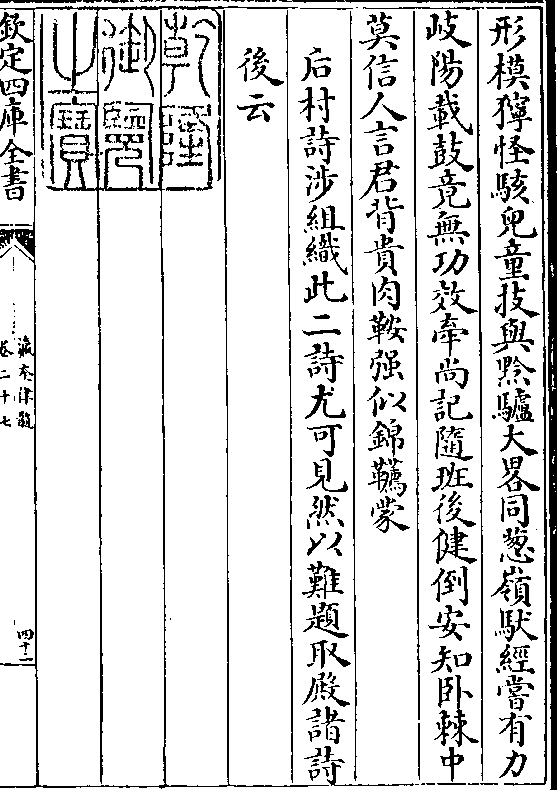 形模獰怪駭兒童技與黔驢大畧同葱嶺馱經嘗有力
岐陽載鼓竟無功效牽尚記隨班後健倒安知卧棘中
莫信人言君背貴肉鞍强似錦韉蒙
后村詩涉組織此二詩尤可見然以難題取殿諸詩
後云
乾隆
御覽
之寶
欽定四庫全書
瀛奎律髓
卷二十七
四十二